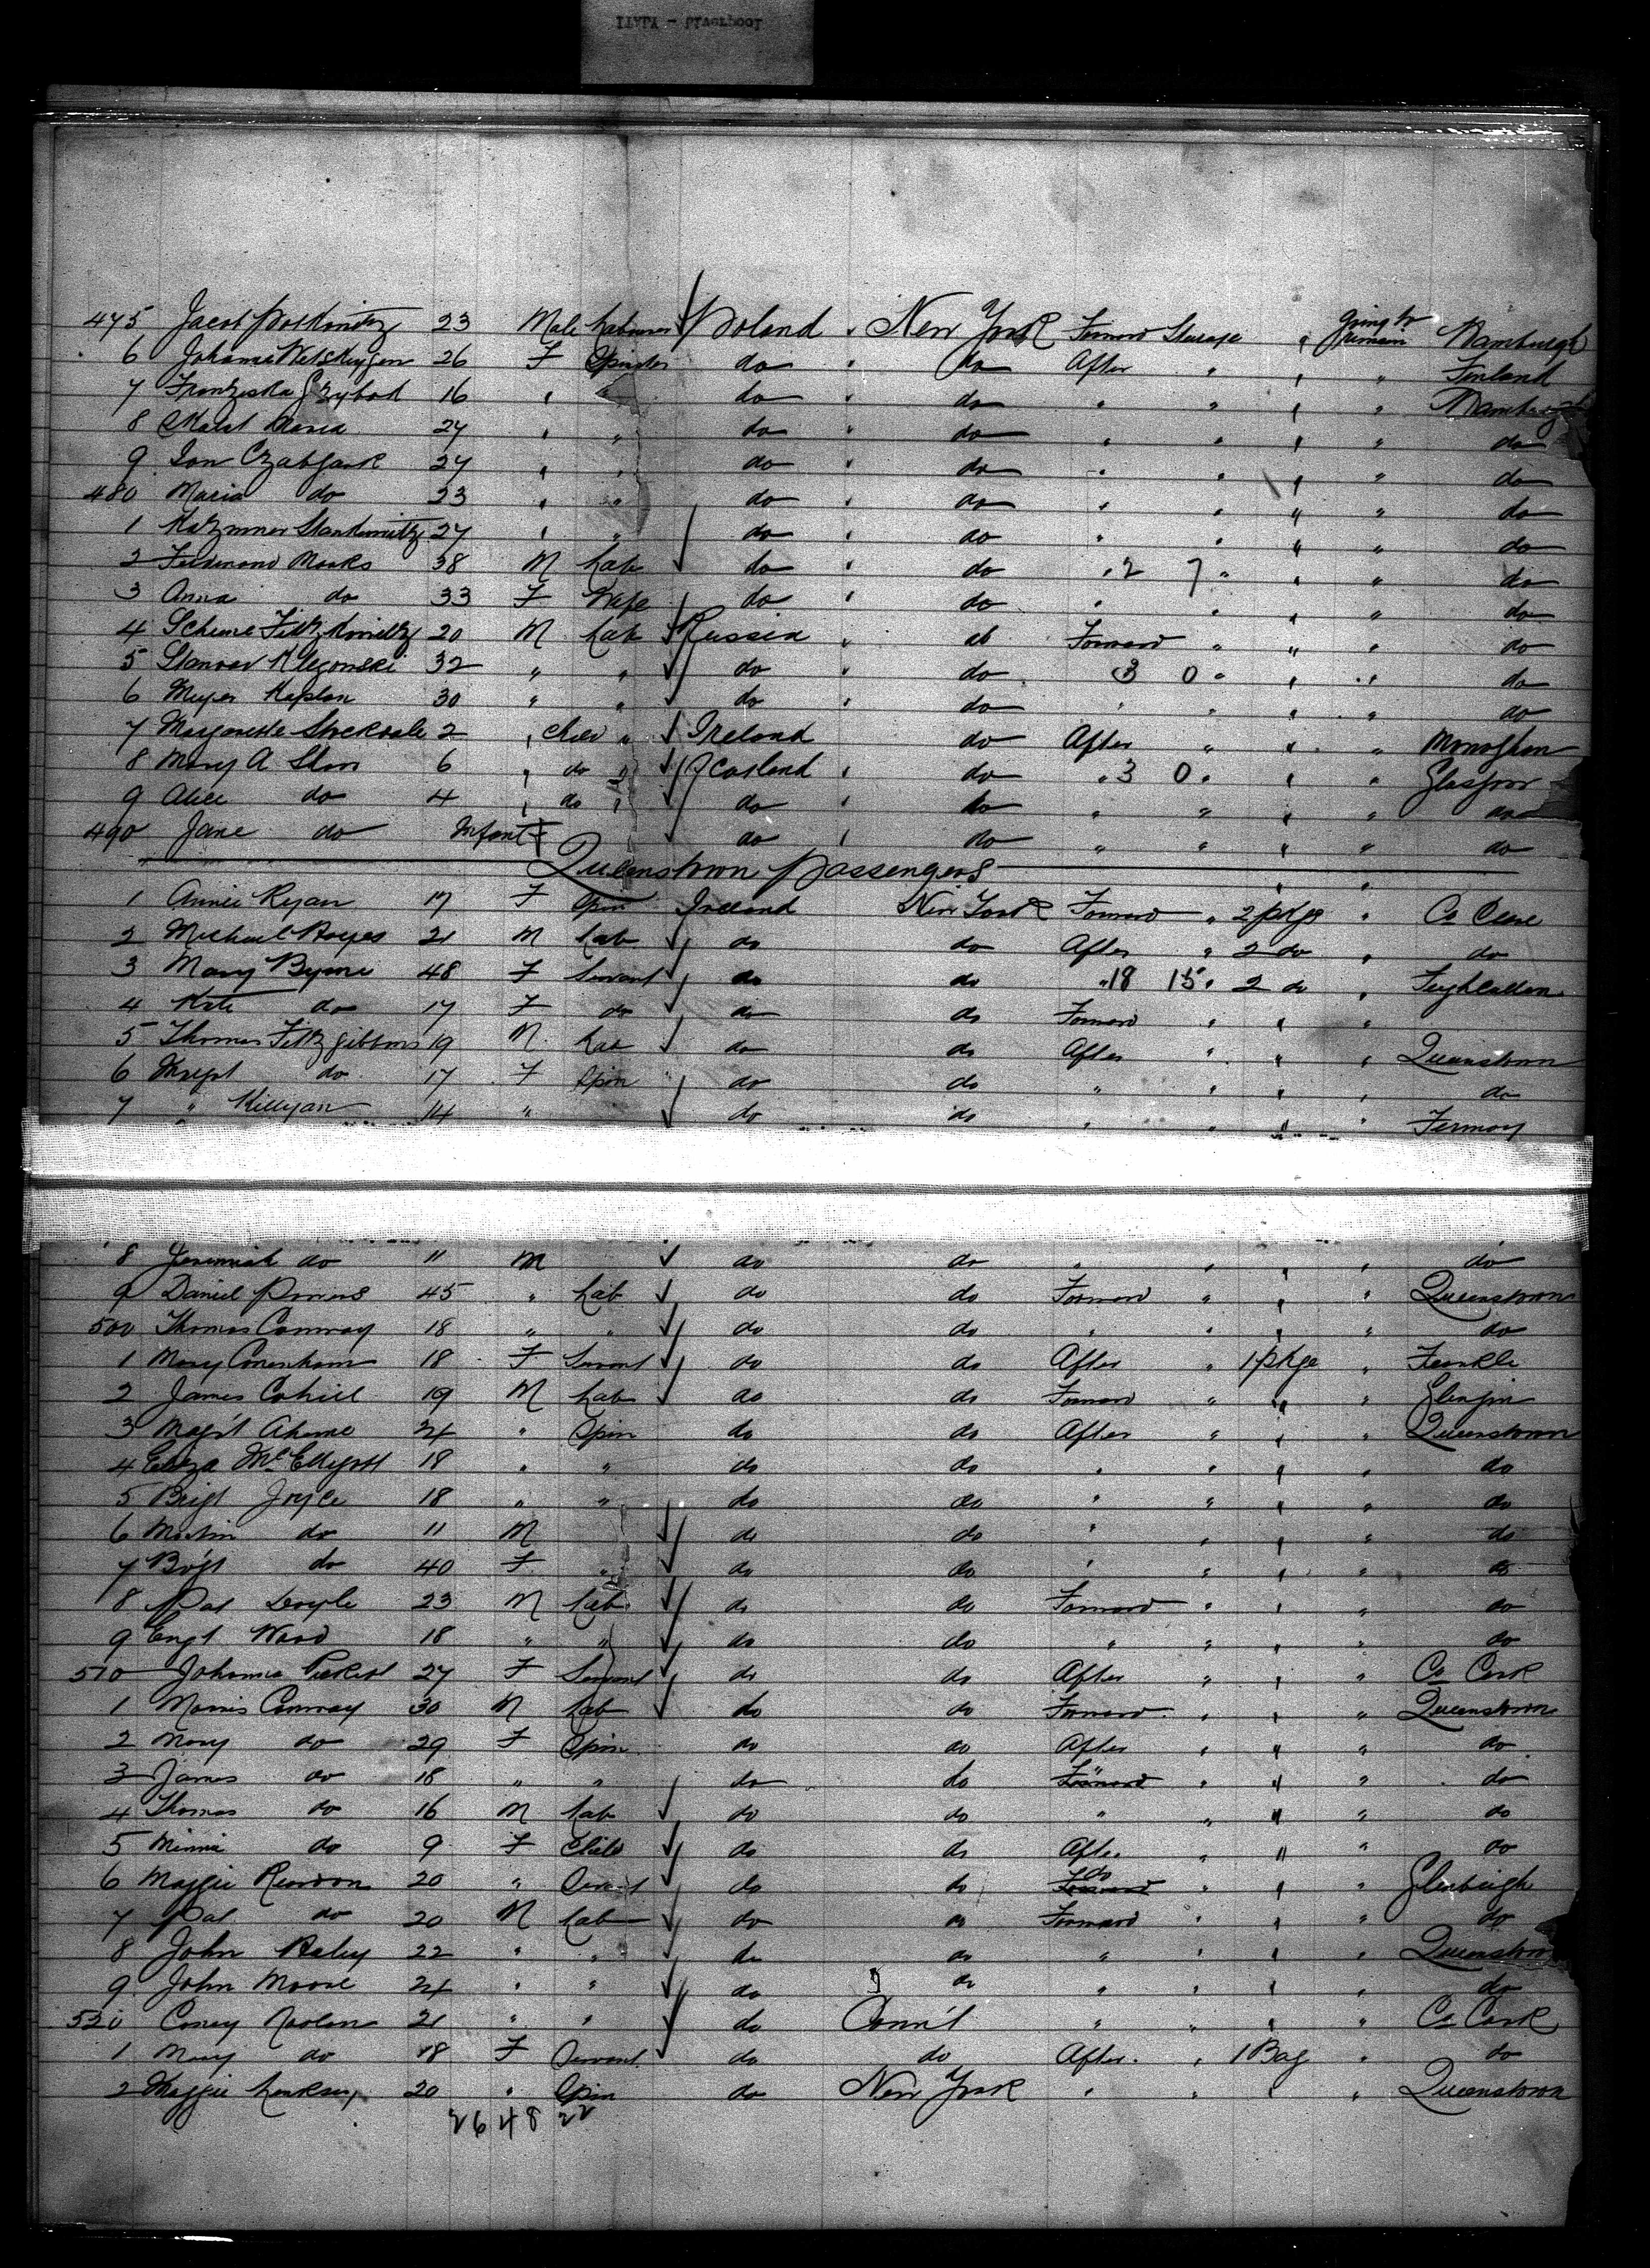 475 Jacob 23 Male Labourer Poland " New York Forward Steerage " going to remain Hamburgh
6 Johanna 26 F Spinster do " do After " " " Finland
7 Franziska Grzybod 16 " do " do " " " " Hamburgh
8 Maria 24 " " do " do " " " " do
9 Jan 24 " " do " do " " " " do
480 Maria do 23 " " do " do " " " " do
1 27 " " do do " " " " do
2 Ferdinand Marks 38 M Lab do " do " 2 7 " " " do
3 Anna do 33 F Wife do " do " " " " do
4 20 M Lab Russia " do Forward " " " do
5 32 " " do " do 3 0 " " " do
6 Meyer Kaplan 30 " " do " do " " " " do
7 Margarette Stocksdale 2 " Child " Ireland do After " " " Monaghan
8 Mary A 6 " do " Scotland " do " 3 0 " " " Glasgow
9 Alice do 4 " do " do " do " " " " do
490 Jane do Infant F do " do " " " " do
Queenstown Passengers
1 Annie Ryan 17 F Spin Ireland New York Forward " 2 pkgs " Co Clare
2 Michael Hayes 21 M Lab do do After " 2 do " do
3 Mary Byrne 48 F Servant do do " 18 15 " 2 do "
4 Kate do 17 F do do do Forward " " "
5 Thomas Fitzgibbons 19 M Lab do do After " " " Queenstown
6 Margt do 17 F Spin do do " " " " do
7 " Killyan 14 " do do " " " " Fermoy
8 Jeremiah do 11 M do do " " " " do
9 Daniel Powers 45 " Lab do do Forward " " " Queenstown
500 Thomas Conway 18 " " do do " " " " do
1 Mary 18 F Servant do do After " 1 pkge " Feakle
2 James Cahill 19 M Lab do do Forward " " "
3 Magt Aherne 24 " Spin do do After " " " Queenstown
4 Eliza McElligott 18 " " do do " " " " do
5 Brigt Joyce 18 " " do do " " " " do
6 Martin do 11 M do do " " " " do
7 Brigt do 40 F " do do " " " " do
8 Pat Doyle 23 M Lab do do Forward " " " do
9 Engt Ward 18 " " do do " " " " do
510 Johanna 27 F Servant do do After " " " Co Cork
1 Morris Conway 30 M Lab do do Forward " " " Queenstown
2 Mary do 29 F Spin do do After " " " do
3 James do 18 " " do do Forward " " " do
4 Thomas do 16 M Lab do do " " " " do
5 Minnie do 9 F Child do do After " " " do
6 Maggie Reardon 20 " Servant do do do Forward " " " Glenbeigh
7 Pat do 20 M Lab do do Forward " " " do
8 John 22 " " do do " " " " Queenstown
9 John Moore 24 " " do do " " " " do
520 Coney Nolan 21 " " do Conn't " " " " Co Cork
1 Mary do 18 F Servant do do After " 1 Bag " do
2 Maggie 20 " Spin do New York " " " " Queenstown
26 48 22